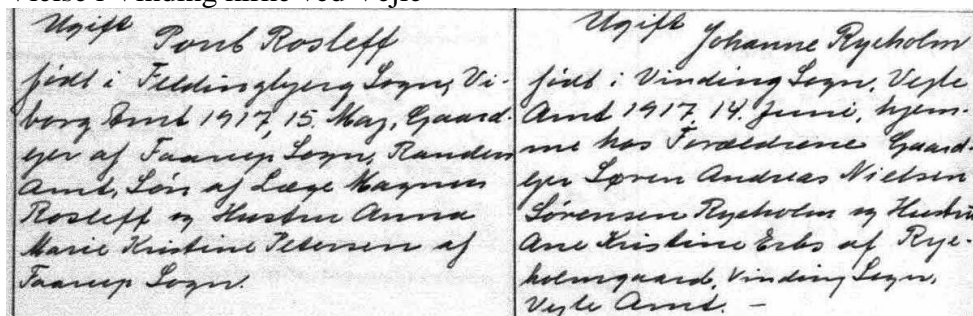 Vielse i Vinding kirke ved Vejle
Ugift
Poul Rosleff
født i Feldingbjerg Sogn, Vi-
borg Amt 1917, 15. Maj, Gaard-
ejer af Faarup Sogn, Randers
Amt, Søn af Læge Magnus
Rosleff og Hustru Anna
Marie Kristine Petersen af
Faarup Sogn.
Ugift
Johanne Ryeholm
født i Vinding Sogn, Vejle
Amt 1917, 14. Juni, hjem-
me hos Forældrene Gaard-
ejer Søren Andreas Nielsen
Sørensen Ryeholm og Hustru
Ane Kristine Erbs af Rye-
holmgaard, Vinding Sogn,
Vejle Amt. –